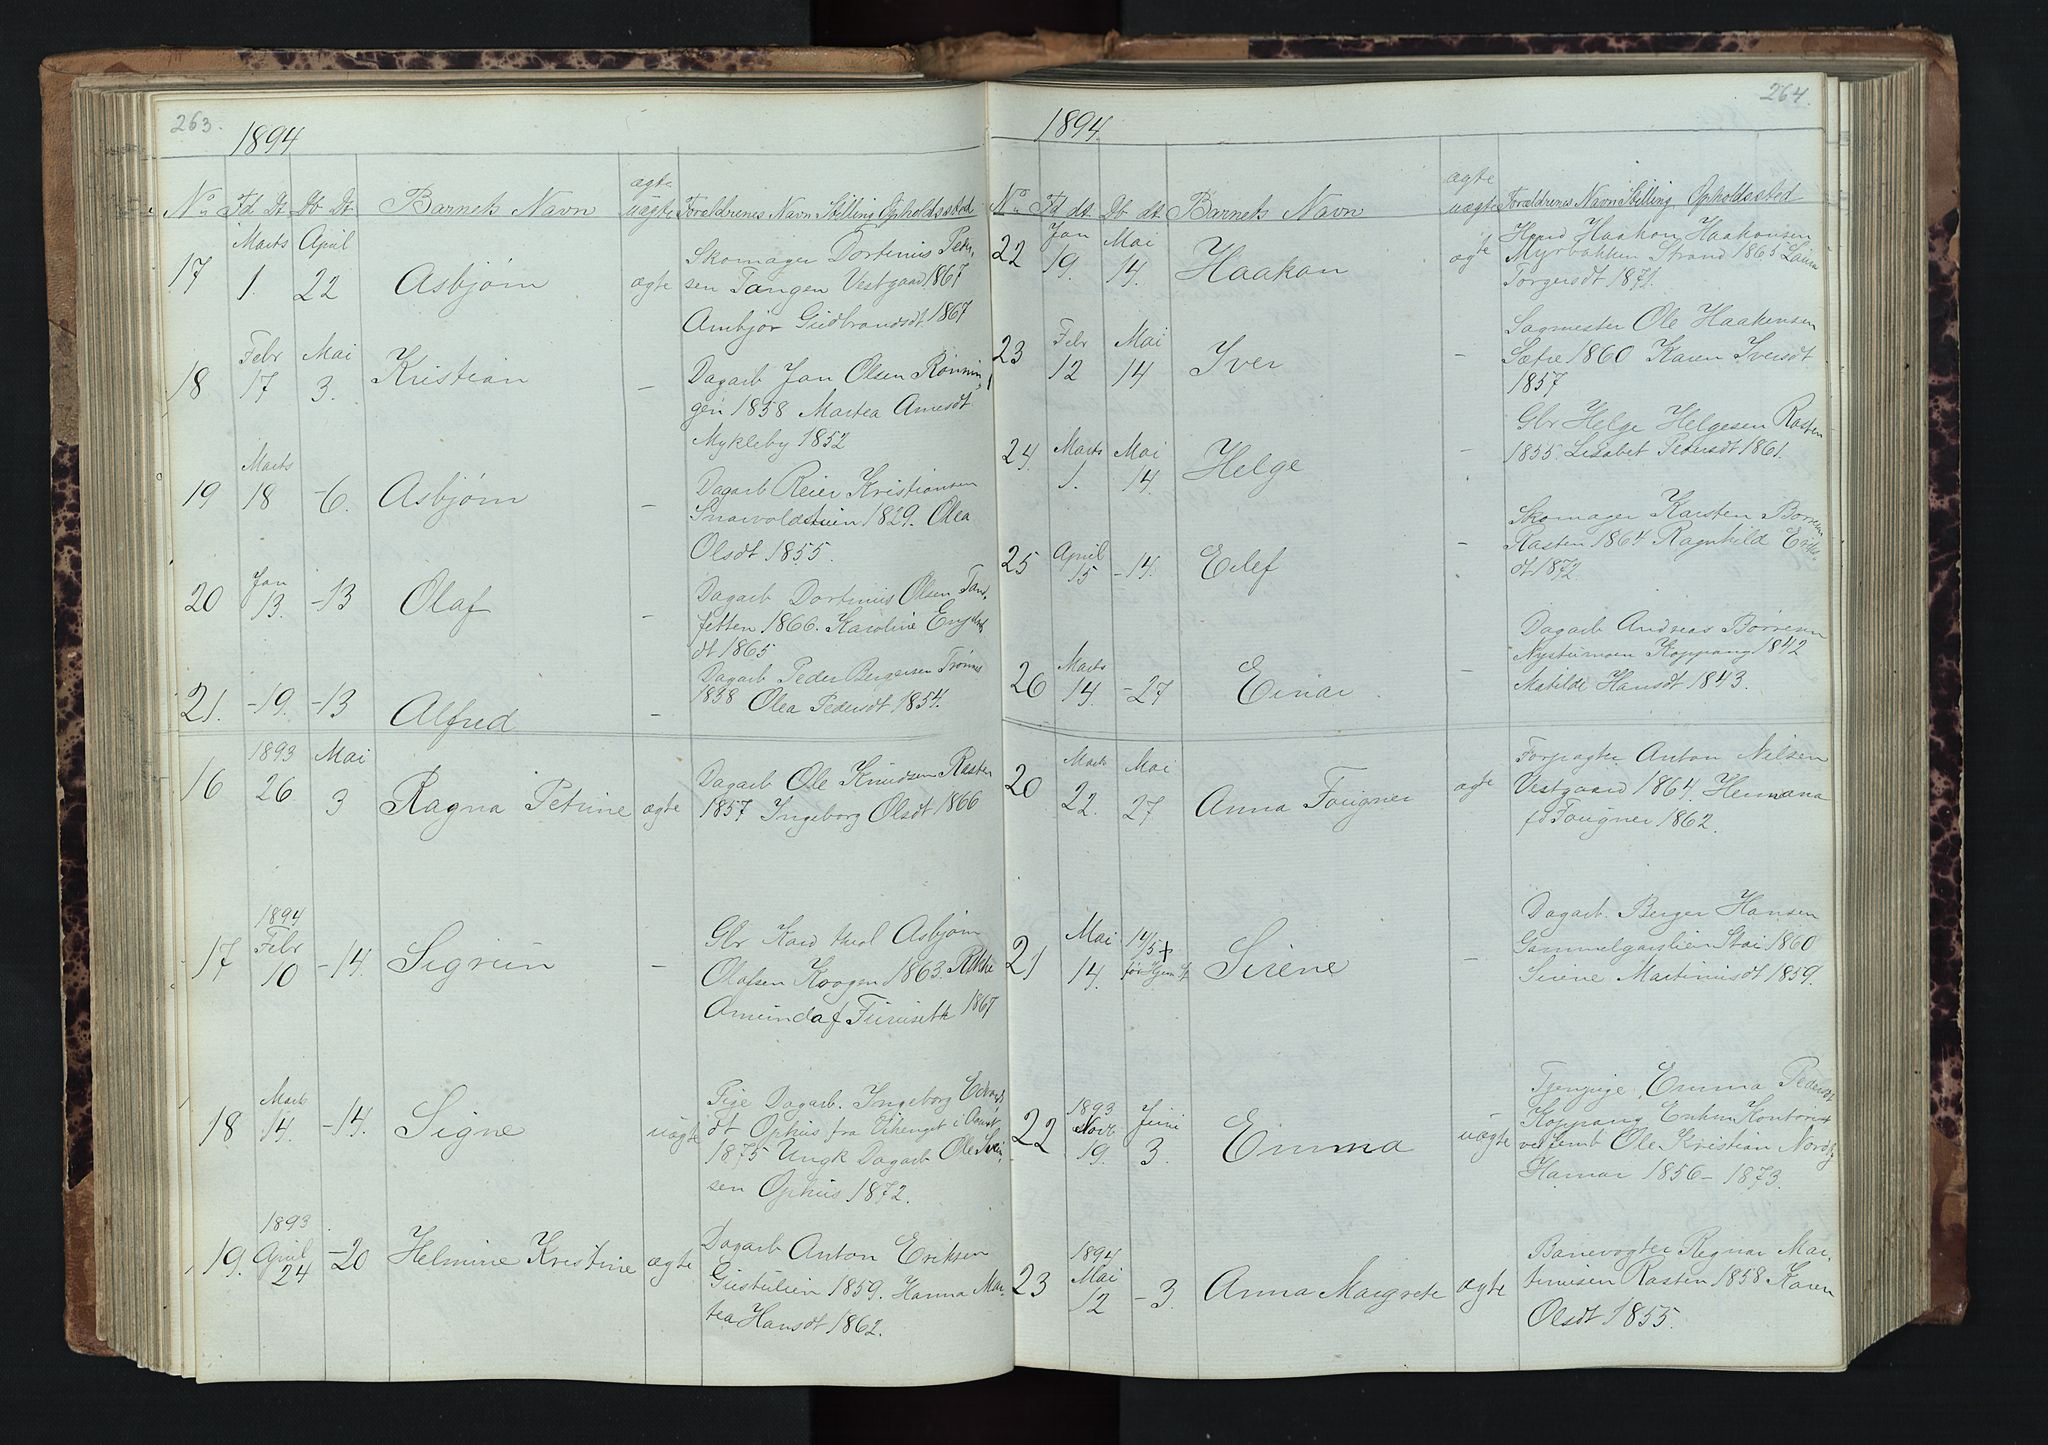 263.
1894
No Fd Dt Db Dt Barnets Navn ægte uægte Forældrenes Navn Stilling Opholdssted
17 Marts 1. April 22 Asbjørn ægte Skomager Dortinus Peder-
sen Tangen Vestgaard 1867
Ambjør Gudbrandsdt 1867
18 Febr 17 Mai 3. Kristian - Dagarb Jon Olsen Rønnin-
gen 1858 Martea Arnesdt
Mykleby 1852
19 Marts 18 - 6. Asbjørn - Dagarb Reier Kristiansen
1829. Olea
Olsdt 1855.
20 Jan 13. - 13 Olaf - Dagarb Dortinus Olsen
1866. Karoline
dt 1865
21. - 19. - 13 Alfred - Dagarb Peder Bergersen Trønnes
1858 Olea Pedersdt 1854.
16 1893 26 Mai 3 Ragna Petrine ægte Dagarb Ole Knudsen Rasten
1857 Ingeborg Olsdt 1866
17 1894 Febr 10 - 14. Sigrun - Gbr Asbjørn
Olafsen Krogen 1863. Rikke
Amunda f Furuseth 1867
18 Marts 14. - 14. Signe uægte Pige Dagarb. Ingeborg
dt Ophus fra i
1875 Ungk Dagarb Ole
sen Ophus 1872.
19. 1893 April 24 - 20 Helmine Kristine ægte Dagarb Anton Eriksen
Gustulien 1859. Hanna Mar-
tea Hansdt 1862.
264.
1894
No Fd dt. Db dt. Barnets Navn ægte uægte Forældrenes Navn Stilling Opholdssted
22 Jan 19. Mai 14. Haakon ægte Haakon Haakonsen
Myrbakken Strand 1865 Laura
Torgersdt 1871.
23 Febr 12 Mai 14 Iver - Sagmester Ole Haakensen
Sætre 1860 Karen Iversdt
1857
24. Marts 1. Mai 14. Helge - Gbr Helge Helgesen Rasten
1855. Lisabet Pedersdt 1861.
25 April 15 - 14. Eilef - Skomager Karsten Børresen
Rasten 1864 Ragnhild Eriks-
dt 1872
26 Marts 14. - 27 Einar - Dagarb Andreas Børresen
Nystumoen Koppang 1842
Matilde Hansdt 1843.
20 Marts 22. Mai 27 Anna Fougner ægte Forpagter Anton Nilsen
Vestgaard 1864. Hermana
fd Fougner 1862.
21 Mai 14. 14/5 + Sirene - Dagarb. Berger Hansen
Stai 1860
Sirene Martinusdt 1859.
22 1893 Novb 19. Juni 3. Emma uægte Tjenpige, Emma Pedersdt
Koppang Enkm Kontorist
Ole Kristian
Hamar 1856 - 1873.
23 1894 Mai 12 - 3. Anna Margrete ægte Banevogter Regnar Mar-
tinusen Rasten 1858 Karen
Olsdt 1855.